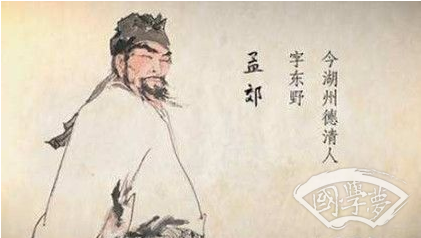 今湖州德清人
字东野
孟郊
國學夢